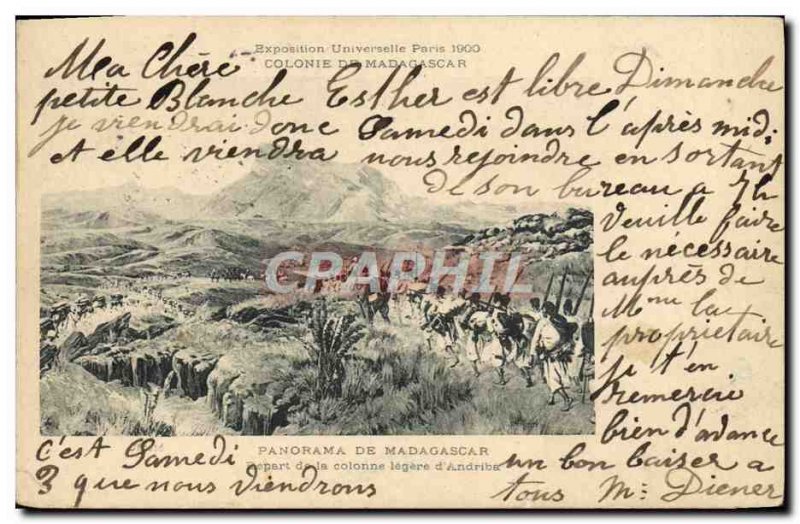 Exposition Universelle Paris 1900
COLONIE DE MADAGASCAR
Ma Chère
petite Blanche Esther est libre Dimanche
je viendrai donc Samedi dans l'après midi
et elle viendra nous rejoindre en sortant
de son bureau a 7h
Veuille faire
le nécessaire
auprès de
Mme la
propriétaire
je t'en
remercie
bien d'avance
CPARPHIL
PANORAMA DE MADAGASCAR
Départ de la colonne légère d'Andriba
un bon baiser a
tous M= Diener
c'est Samedi
3 que nous viendrons